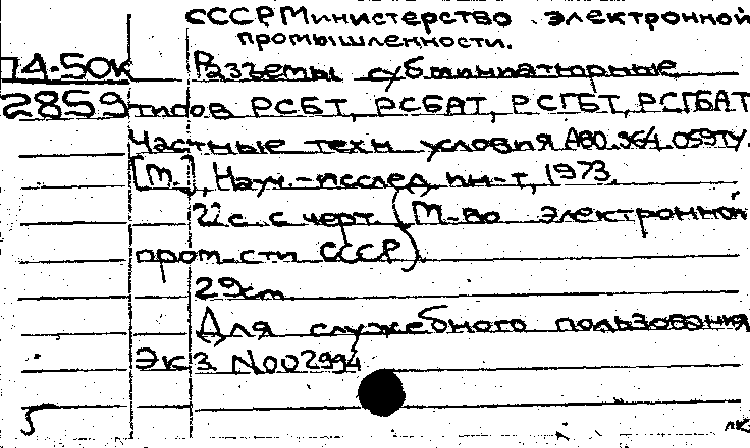 СССР Министерство электронной
промышленности.
74-50к Разъемы субминиатюрные
2859 типов РСБТ, РСБАТ, РСГБТ, РСГБАТ
Частные техн условия АВ0.364.059ТУ.
[М.], Науч.-исслед. ин-т, 1973.
22с. с черт. (М-во электронной
пром-сти СССР).
29см.
Для служебного пользования
Экз. №002994
5 лк